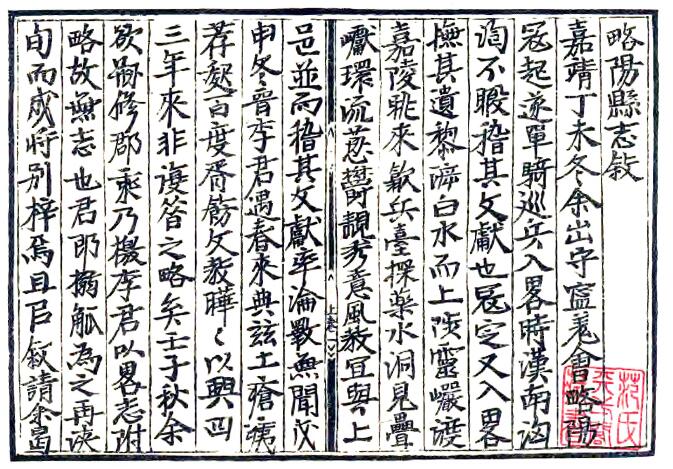 略陽縣志敘
嘉靖丁未冬余出守寧羌會略陽
冦起遂單騎巡兵入畧時漢南洶
洶不暇稽其文獻也冦定又入畧
撫其遺黎濟白水而上陟靈巖渡
嘉陵眺來歙兵臺探藥水洞見疊
巘環流蔥鬱靚秀意風教宜與上
上卷
邑並而稽其文獻率淪斁無聞戊
申冬晉李君遇春來典玆土瘡痍
荐甦百度胥飭文教曄〻以興四
三年來非復昝之略矣壬子秋余
欲嗣修郡乘乃檄李君以畧志附
略故無志也君即搦觚為之再浹
旬而成將別梓焉且㠯敘請余曷